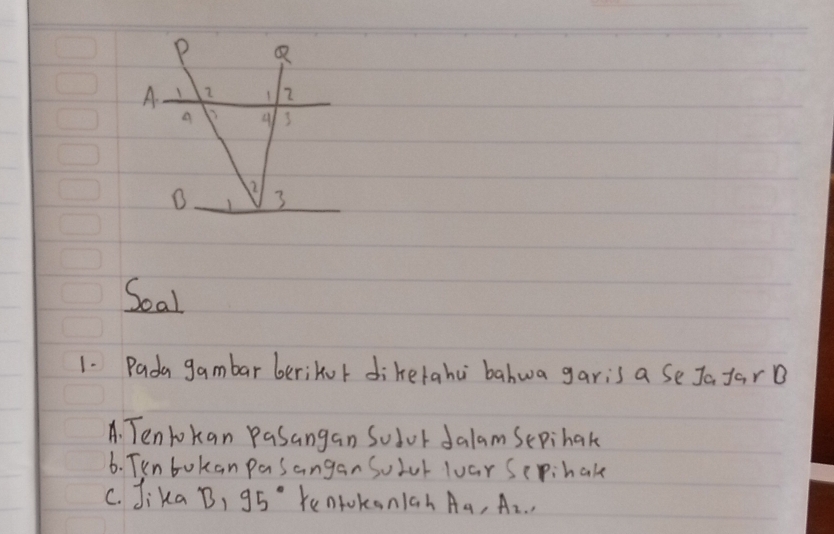 P Q
A 1 2 1 2
4 3 4 3
B 1 2 3
Soal
1- Pada gambar berikut diketahui bahwa garis a seJaJar B
A. Tentukan Pasangan Sudut dalam Sepihak
b. Tentukan pasangan Sudut luar Sepihak
C. Jika B1 95° tentukanlah A4, A2..